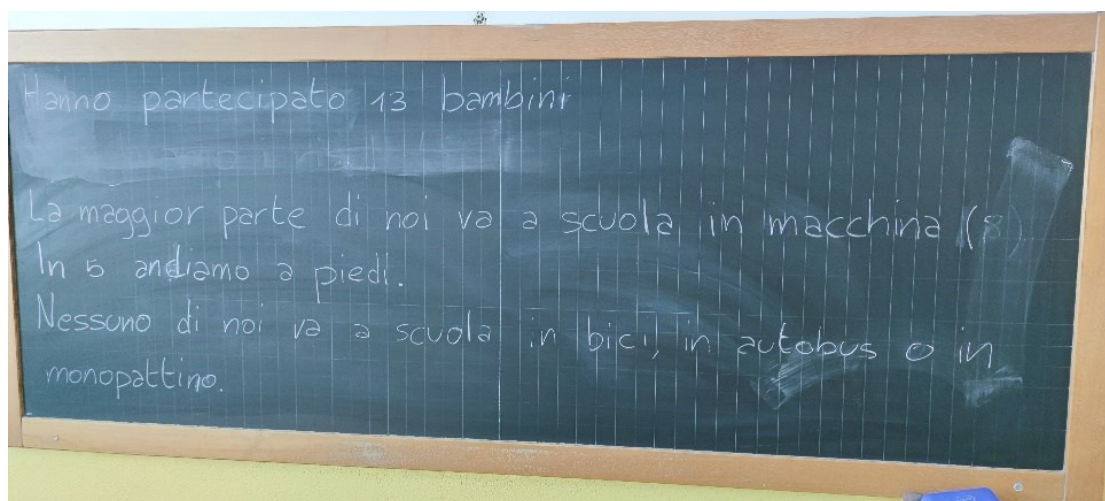 Hanno partecipato 13 bambini
La maggior parte di noi va a scuola in macchina (8).
In 5 andiamo a piedi.
Nessuno di noi va a scuola in bici, in autobus o in
monopattino.